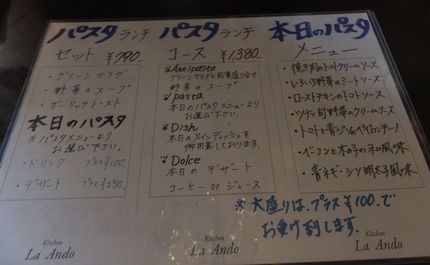 パスタランチ
セット ¥990
・グリーンサラダ
・野菜のスープ
・ガーリックトースト
本日のパスタ
※パスタメニューより
お選び下さい。
・ドリンク プラス¥100
・デザート プラス¥250
パスタランチ
コース ¥1,380
Antipasto
グリーンサラダと前菜盛り合せ
野菜のスープ
pasta
本日のパスタメニューより
お選び下さい。
Dish
本日のメインディッシュを
御用意しております。
Dolce
本日のデザート
コーヒー or ジュース
本日のパスタ
メニュー
のトマトクリームソース
・いろいろ野菜のミートソース
・ローストチキンのトマトソース
・ツナと旬野菜のクリームソース
・トマトと青ジソ
・ベーコンと木の子の和風味
・青ネギ・シソ明太子風味
※大盛りは、プラス¥100で
お受け致します。
Kitchen
La Ando
Kitchen
La Ando
Kitchen
La Ando